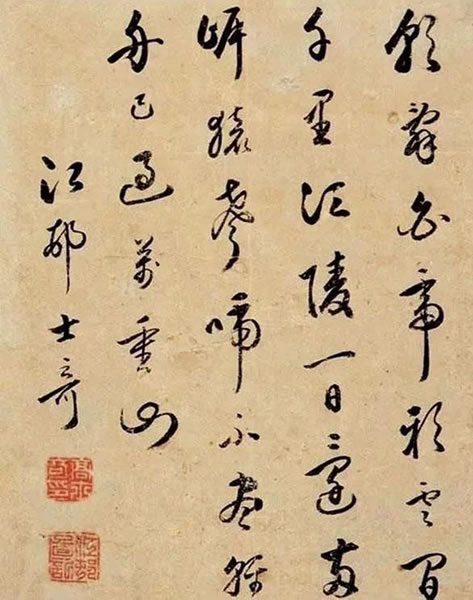 朝辭白帝彩雲間
千里江陵一日還兩
岸猿聲啼不盡輕
舟已過萬重山
江邨士奇